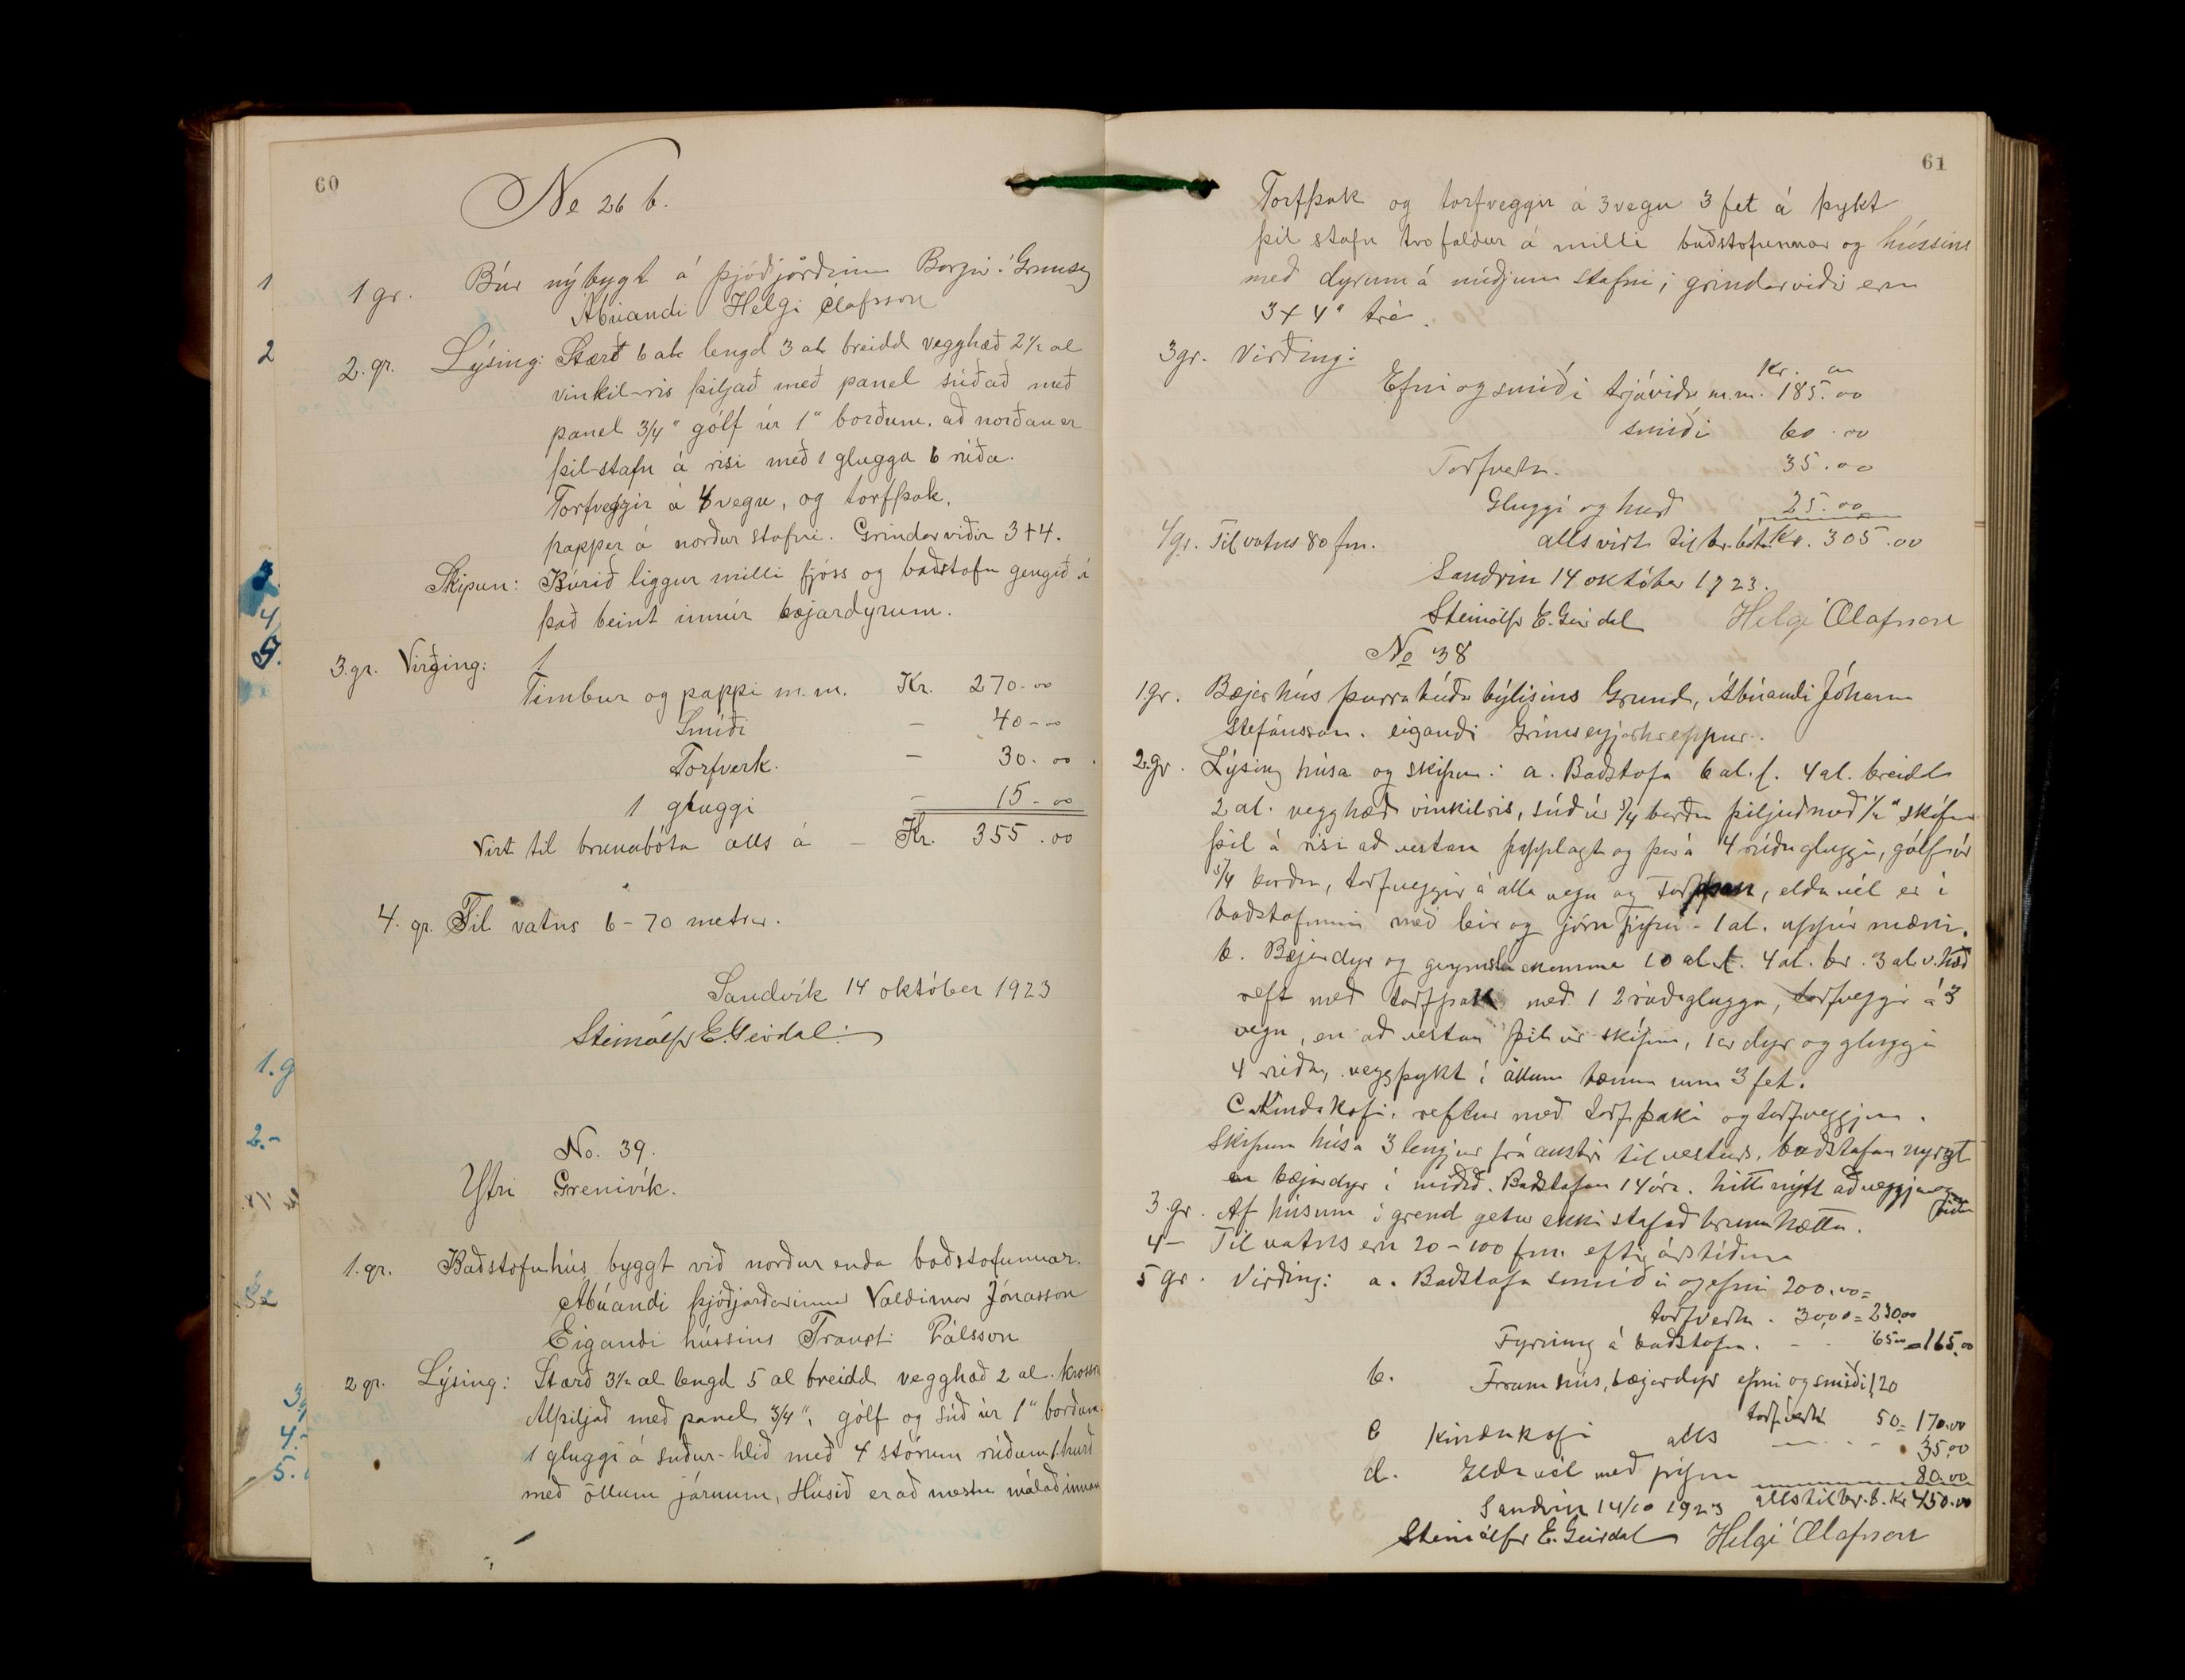 60
No 26 b.
1 gr. Búr nýbygt á þjóðjörðinni Borgir í Grímsey
Ábúandi Helgi Ólafsson
2. gr. Lýsing: Stærð 6 al. lengd 3 al. breidd vegghæð 2 1/2 al
vinkil-ris þiljað með panel súðað með
panel 3/4" gólf úr 1" borðum. að norðan er
þil-stafn á risi með 1 glugga 6 rúða.
Torfveggir á 4 vegu, og torfþak,
pappi á norður stafni. Grindarviðir 3+4.
Skipun: Búrið liggur milli fjóss og baðstofu gengið í
það beint innúr bæjardyrum.
3. gr. Virðing:
Timbur og pappi m.m. Kr. 270-00
Smíði – 40-00
Torfverk. – 30.00
1 gluggi – 15-00
Virt til brunabóta alls á – Kr. 355.00
4. gr. Til vatns 6-70 metrar.
Sandvík 14 október 1923
Steinólfr E. Geirdal.
No. 39.
Ytri Grenivík.
1. gr. Baðstofuhús byggt við norður enda baðstofunnar.
Ábúandi þjóðjarðarinnar Valdimar Jónasson
Eigandi hússins Trausti Pálsson
2 gr. Lýsing: Stærð 3 1/2 al lengd 5 al breidd vegghæð 2 al.
Alþiljað með panel 3/4", gólf og súð úr 1" borðum
1 gluggi á suður-hlið með 4 stórum rúðum, 1 hurð
með öllum járnum, Húsið er að mestu málað innan
61
Torfþak og torfveggir á 3 vegu 3 fet á þykt
þil stafn tvofaldur á milli baðstofunnar og hússins
með dyrum á miðjum stafni; grindarviðir eru
3+4" tré.
3 gr. Virðing:
Kr. au
Efni og smíði trjáviðr m.m. 185.00
smíði 60.00
Torfverk. 35.00
Gluggi og hurð 25.00
4 gr. Til vatns 80 fm. alls virt til br.bóta Kr. 305.00
Sandvík 14 október 1923.
Steinólfr E. Geirdal Helgi Ólafsson
No 38
1. gr. Bæjarhús þurrabúðarbýlisins Grund, Ábúandi Jóhann
Stefánsson. eigandi Grímseyjarhreppur.
2. gr. Lýsing húsa og skipun: a. Baðstofa 6 al. l. 4 al. breidd
2 al. vegghæð vinkilris, súð úr 3/4 borðum þiljuð með 1/2" skífum
þil á risi að vestan papplagt og þar á 4 rúðu gluggi, gólf úr
5/4 borðum, torfveggir á alla vegu og torfþak, eldavél er í
baðstofunni með leir og járn pípu - 1 al. uppúr mæni.
b. Bæjardyr og geymsluskemma 10 al. l. 4 al. br. 3 al. v. hæð
reft með torfþaki með 1 2 rúðu glugga, torfveggir á 3
vegu, en að vestan þil úr skífum, 1 er dyr og gluggi
4 rúðu, veggþykt í öllum bænum um 3 fet.
C. Kindakofi, reftur með torfþaki og torfveggjum.
Skipun húsa 3 lengjur frá austri til vesturs, baðstofan nyrzt
en bæjardyr í miðið. Baðstofan 14 ára. hitt nýtt að veggjum og
viðum
3 gr. Af húsum í grend getur ekki stafað bruna hætta.
4 – Til vatns eru 20-100 fm. eftir árstíðum
5 gr. Virðing: a. Baðstofa smíði og efni 200.00
torfverk. 30.00 = 230.00
Fyrning á baðstofu. – 65.00 = 165.00
b. Fram hús, bæjardyr efni og smíði 120
torfverk 50 = 170.00
C Kindakofi alls 35.00
d. Eldavél með pípum 80.00
alls til br.b. Kr 450.00
Sandvík 14/10 1923
Steinólfr E. Geirdal Helgi Ólafsson